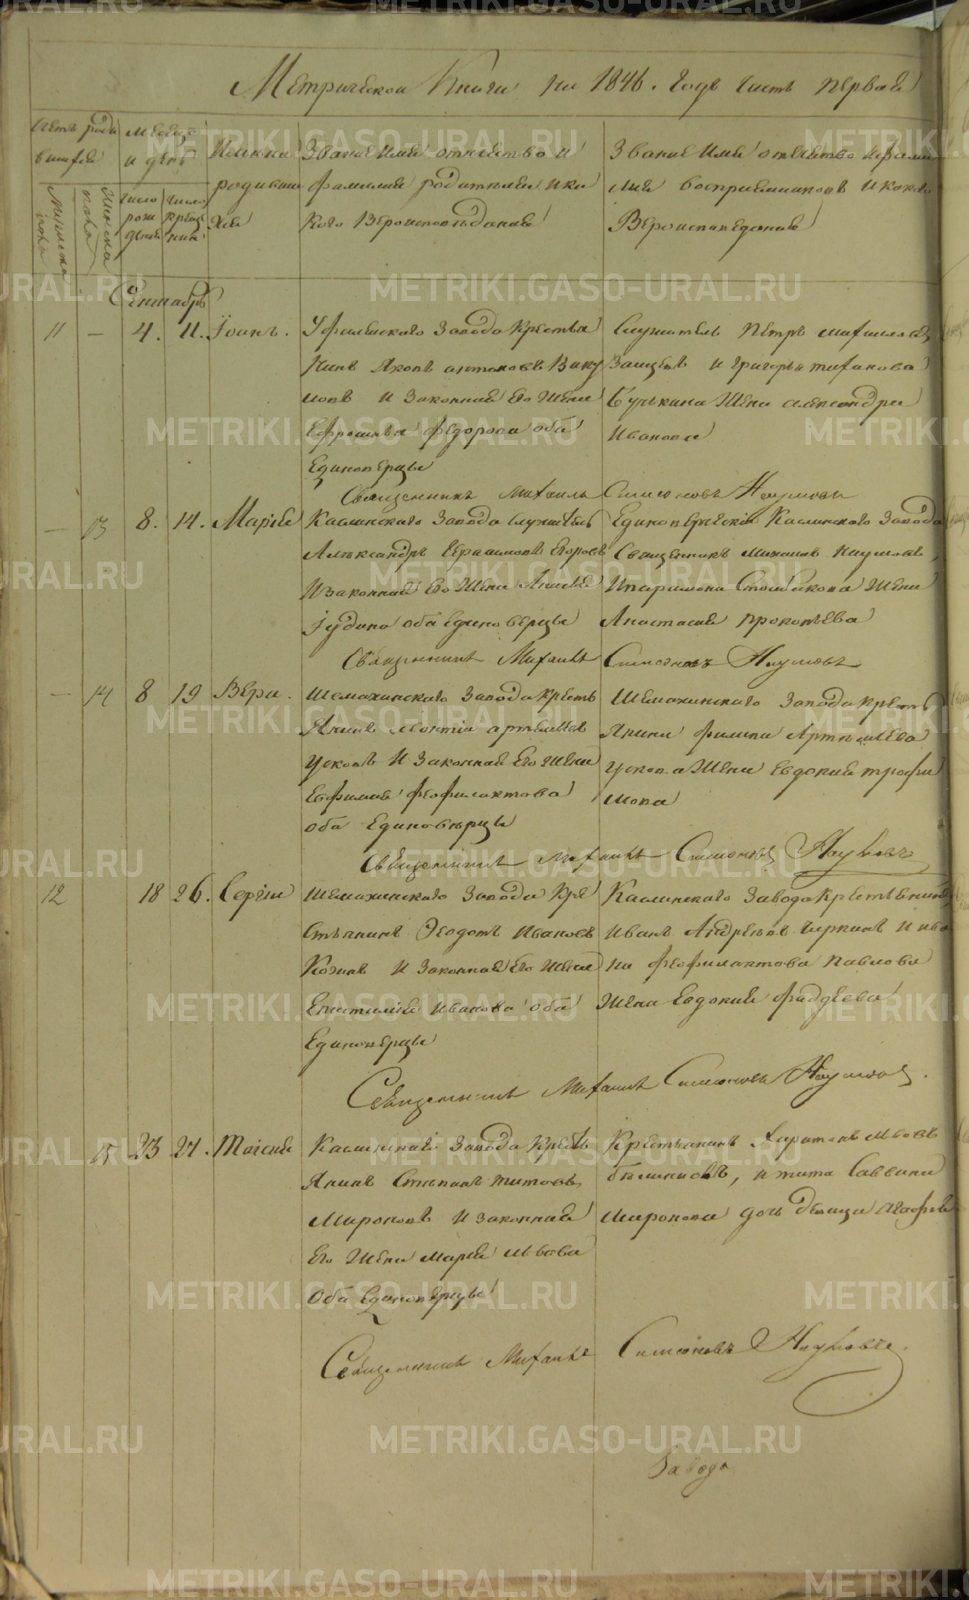 Метрической Книги на 1846. годъ часть первая
Счетъ роди
вшихся
Мужеска
пола
Женска
пола
Месяцъ
и день
число
рож
денія
число
креще
нія
Имена
родивши
хся
Званіе Имя отчество и
фамилія родителей и ка
кого Вероисповѣданія
Званіе Имя отчество и фами
лія восприемниковъ и какого
Вероисповеданія
Сентябрь
11 — 4. 11. Іоанъ.
Уфалейского Завода Крестья
нинъ Яковъ Антоновъ Ваку
ловъ и Законная его Жена
Ефросинья Федорова оба
Единоверцы
Служитель Петръ Михаиловъ
Зайцовъ и Григорья
Жена Александра
Иванова
Священникъ Михаилъ Симеоновъ Наумовъ
— 13 8. 14. Марія
Каслинского Завода служитель
Александръ Герасимовъ Егоровъ
И законная его Жена Анисья
Іудина оба Единоверцы
Единоверческій Каслинского Завода
Священникъ Михаилъ Наумовъ,
И Жена
Анастасия Прокопьева
Священникъ Михаилъ Симеоновъ Наумовъ
— 14 8 19 Вера.
Шемахинского Завода Кресть
янинъ Леонтій Артемьевъ
Усковъ И Законная его Жена
Евфимия Феофилактова
оба Единовѣрцы
Шемахинского Завода Кресть
янина Филипа Артемьева
Ускова Жена Евдокия Трофи
мова
Священникъ Михаилъ Симеоновъ Наумовъ
12 18 26. Сергiй
Шемахинского Завода Кре
стьянинъ Феодотъ Ивановъ
Козинъ И Законная его Жена
Епистимія Иванова оба
Единоверцы
Каслинского Завода Крестьянинъ
Иванъ Андреевъ Чиркинъ И Ива
на Феофилактова Павлова
Жена Евдокия Фаддеева
Священникъ Михаилъ Симеоновъ Наумовъ.
15 23 27. Таисия
Каслинскаго Завода Кресть
янинъ Степанъ Титовъ
Мироновъ И законная
Его Жена Марья Львова
Оба Единоверцы
Крестьянинъ Харитонъ Львовъ
, и Тита Саввина
Миронова дочь девица Агафья
Священникъ Михаилъ Симеоновъ Наумовъ.
Завода